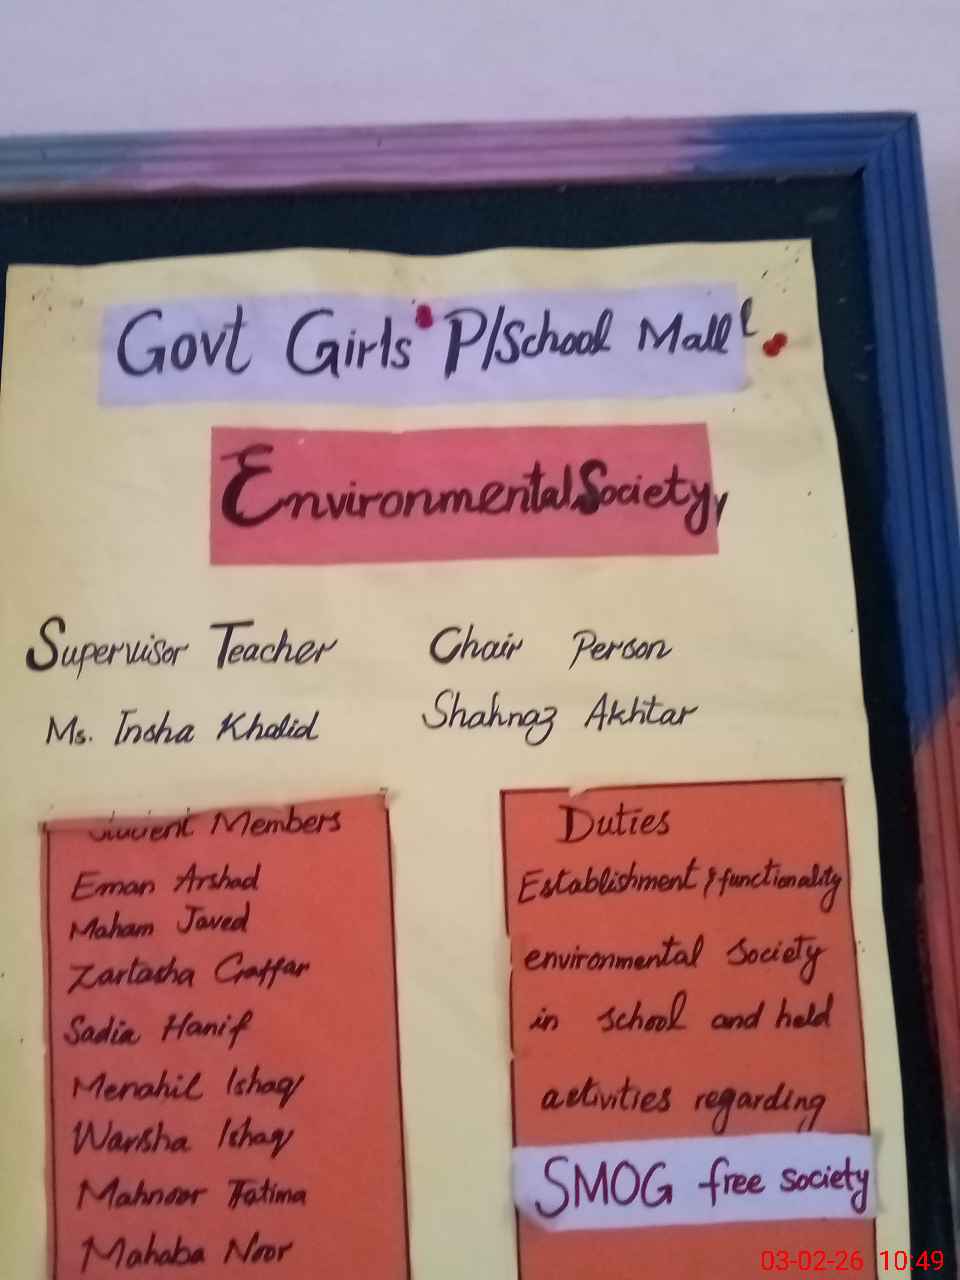 Govt Girls P/School Mall
Environmental Society
Supervisor Teacher
Ms. Insha Khalid
Chair Person
Shahnaz Akhtar
Student Members
Eman Arshad
Maham Javed
Zartasha Gaffar
Sadia Hanif
Menahil Ishaq
Warisha Ishaq
Mahnoor Fatima
Mahaba Noor
Duties
Establishment & functionality
environmental Society
in school and held
activities regarding
SMOG free society
03-02-26 10:49